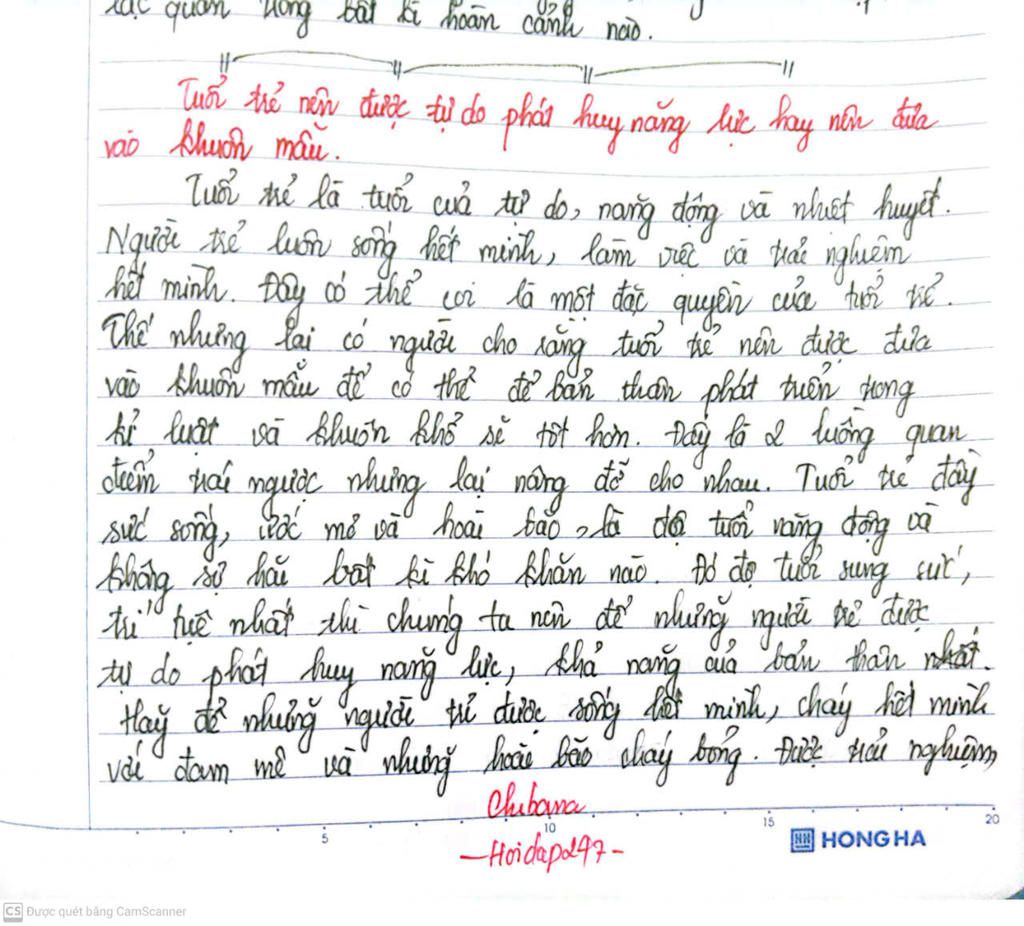 lạc quan trong bất kì hoàn cảnh nào.
Tuổi trẻ nên được tự do phát huy năng lực hay nên đưa
vào khuôn mẫu.
Tuổi trẻ là tuổi của tự do, năng động và nhiệt huyết.
Người trẻ luôn sống hết mình, làm việc và trải nghiệm
hết mình. Đây có thể coi là một đặc quyền của tuổi trẻ.
Thế nhưng lại có người cho rằng tuổi trẻ nên được đưa
vào khuôn mẫu để có thể để bản thân phát triển trong
kỉ luật và khuôn khổ sẽ tốt hơn. Đây là 2 luồng quan
điểm trái ngược nhưng lại nâng đỡ cho nhau. Tuổi trẻ đầy
sức sống, ước mơ và hoài bão, là độ tuổi năng động và
không sợ hãi bất kì khó khăn nào. Ở độ tuổi sung sức,
trí tuệ nhất thì chúng ta nên để những người trẻ được
tự do phát huy năng lực, khả năng của bản thân nhất.
Hãy để những người trẻ được sống hết mình, cháy hết mình
với đam mê và những hoài bão cháy bỏng. Được trải nghiệm,
Chibana
-Hoidap247-
5 10 15 20
HH HONG HA
CS Được quét bằng CamScanner